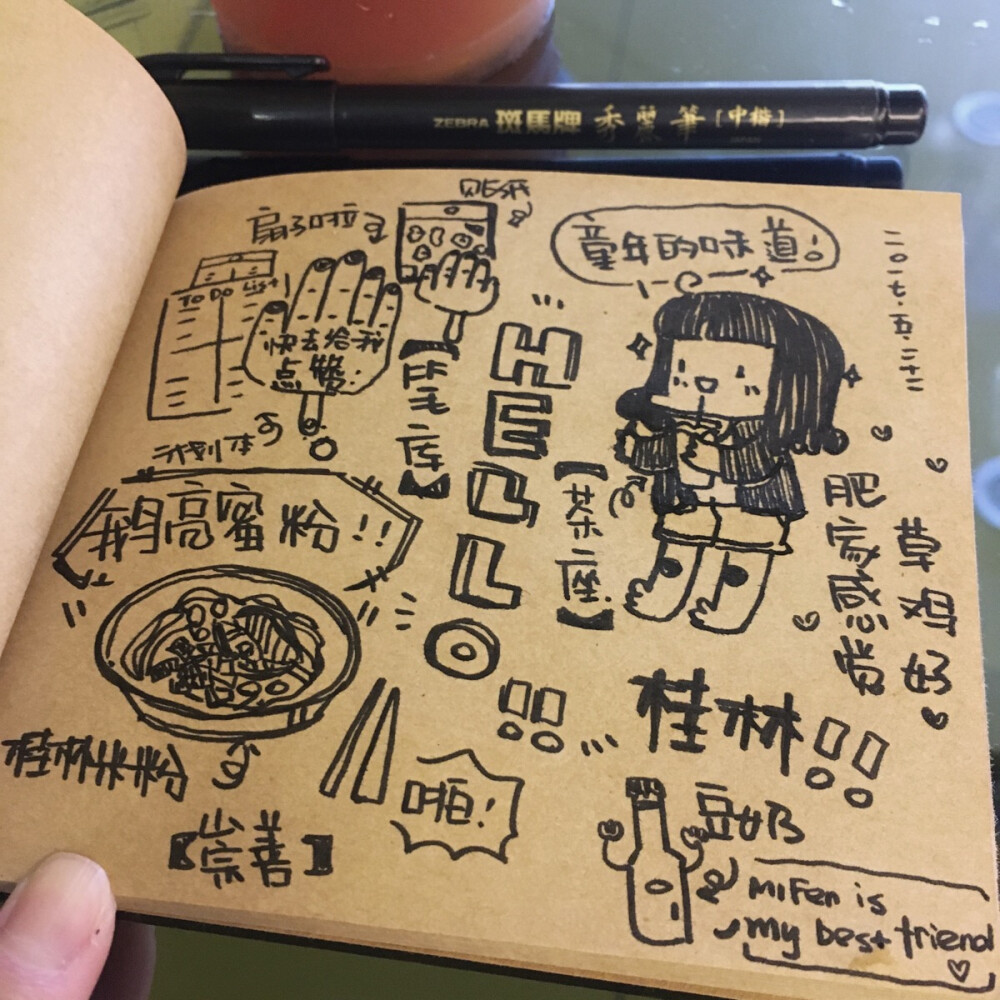 ZEBRA 斑馬牌 秀麗筆 [中楷]
JAPAN
贴纸
扇子啦
童年的味道!
二〇一七.五.二十二
TO DO List
快去给我
点赞!
计划本
HELLO!!
【茶座】
肥家感觉
草鸡好
鹅高蜜粉!!
桂林米粉
【崇善】
桂林!!
豆奶
MiFen is
my best friend